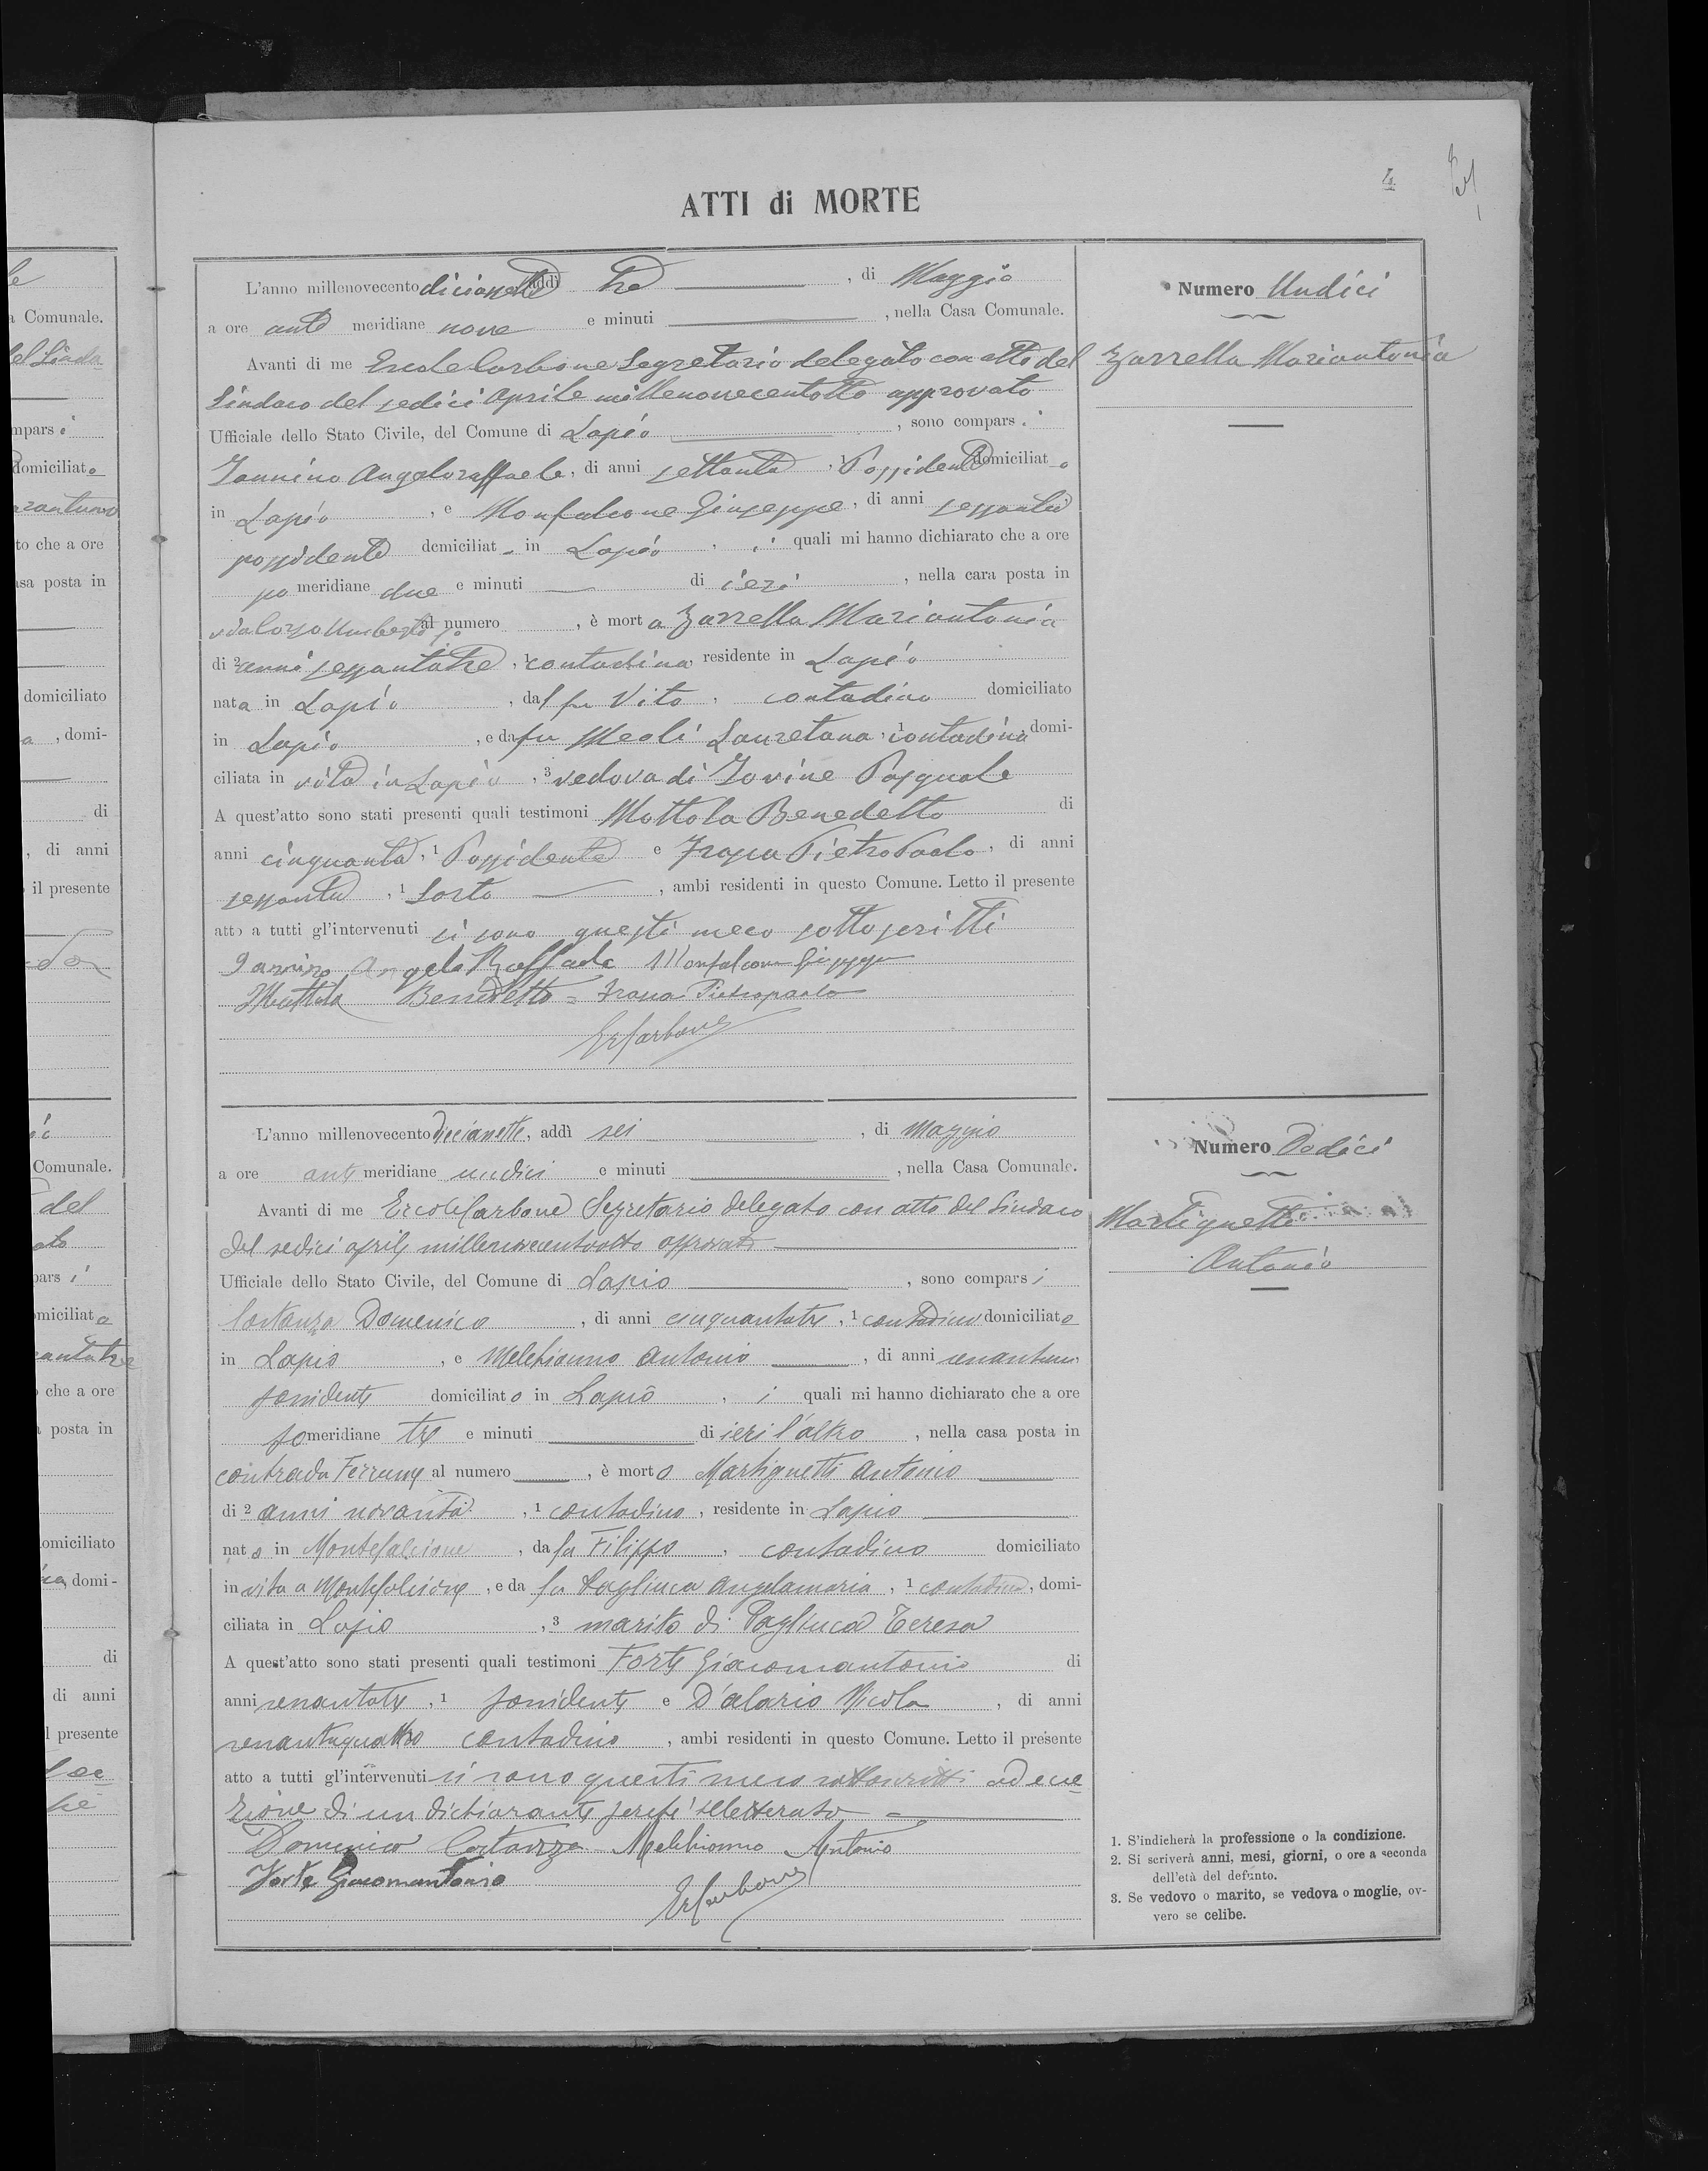 4
ATTI di MORTE
L'anno millenovecento diciassette addì tre, di Maggio
a ore ante meridiane nove e minuti, nella Casa Comunale.
Avanti di me Ercole Carbone Segretario delegato con atto del
Sindaco del sedici Aprile millenovecentotto approvato
Ufficiale dello Stato Civile, del Comune di Lapio, sono compars i
Iannino Angeloraffaele, di anni settanta, 1 Possidente domiciliat o
in Lapio, e Monfalcone Giuseppe, di anni sessanta
possidente domiciliat in Lapio, i quali mi hanno dichiarato che a ore
po meridiane due e minuti di ieri, nella cara posta in
via Corso Umberto Io al numero, è mort a Zarrella Mariantonia
di 2 anni sessantatre, 1 contadina residente in Lapio
nat a in Lapio, dal fu Vito, contadino domiciliato
in Lapio, e da fu Meoli Lauretana, 1 contadina domi-
ciliata in vita in Lapio, 3 vedova di Iovine Pasquale
A quest'atto sono stati presenti quali testimoni Mottola Benedetto di
anni cinquanta, 1 Possidente e Pietro Paolo, di anni
sessanta, 1 Sarto, ambi residenti in questo Comune. Letto il presente
atto a tutti gl'intervenuti si sono questi meco sottoscritti
Iannino Angelo Raffaele Monfalcone Giuseppe
Mottola Benedetto = Pietropaolo
ErCarbone
Numero Undici
Zarrella Mariantonia
L'anno millenovecento diecianette, addì sei, di Maggio
a ore ante meridiane undici e minuti, nella Casa Comunale.
Avanti di me Ercole Carbone Segretario delegato con atto del Sindaco
del sedici aprile millenovecentootto approvato
Ufficiale dello Stato Civile, del Comune di Lapio, sono compars i
Costanza Domenico, di anni cinquantatre, 1 contadino domiciliat o
in Lapio, e Melchionno Antonio, di anni
possidente domiciliat o in Lapio, i quali mi hanno dichiarato che a ore
po meridiane tre e minuti di ieri l'altro, nella casa posta in
contrada Ferrume al numero, è mort o Martignetti Antonio
di 2 anni novanta, 1 contadino, residente in Lapio
nat o in Montefalcione, da fu Filippo, contadino domiciliato
in vita a Montefalcione, e da fu Pagliuca Angelamaria, 1 contadina, domi-
ciliata in Lapio, 3 marito di Pagliuca Teresa
A quest'atto sono stati presenti quali testimoni Forte Giacomantonio di
anni sessantatre, 1 possidente e D'alario Nicola, di anni
sessantaquattro contadino, ambi residenti in questo Comune. Letto il presente
atto a tutti gl'intervenuti si sono questi meco sottoscritti ad ecce
zione di un dichiarante perché illetterato =
Domenico Costanza Melchionno Antonio
Forte Giacomantonio
ErCarbone
Numero Dodici
Martignetti
Antonio
1. S'indicherà la professione o la condizione.
2. Si scriverà anni, mesi, giorni, o ore a seconda
dell'età del defunto.
3. Se vedovo o marito, se vedova o moglie, ov-
vero se celibe.